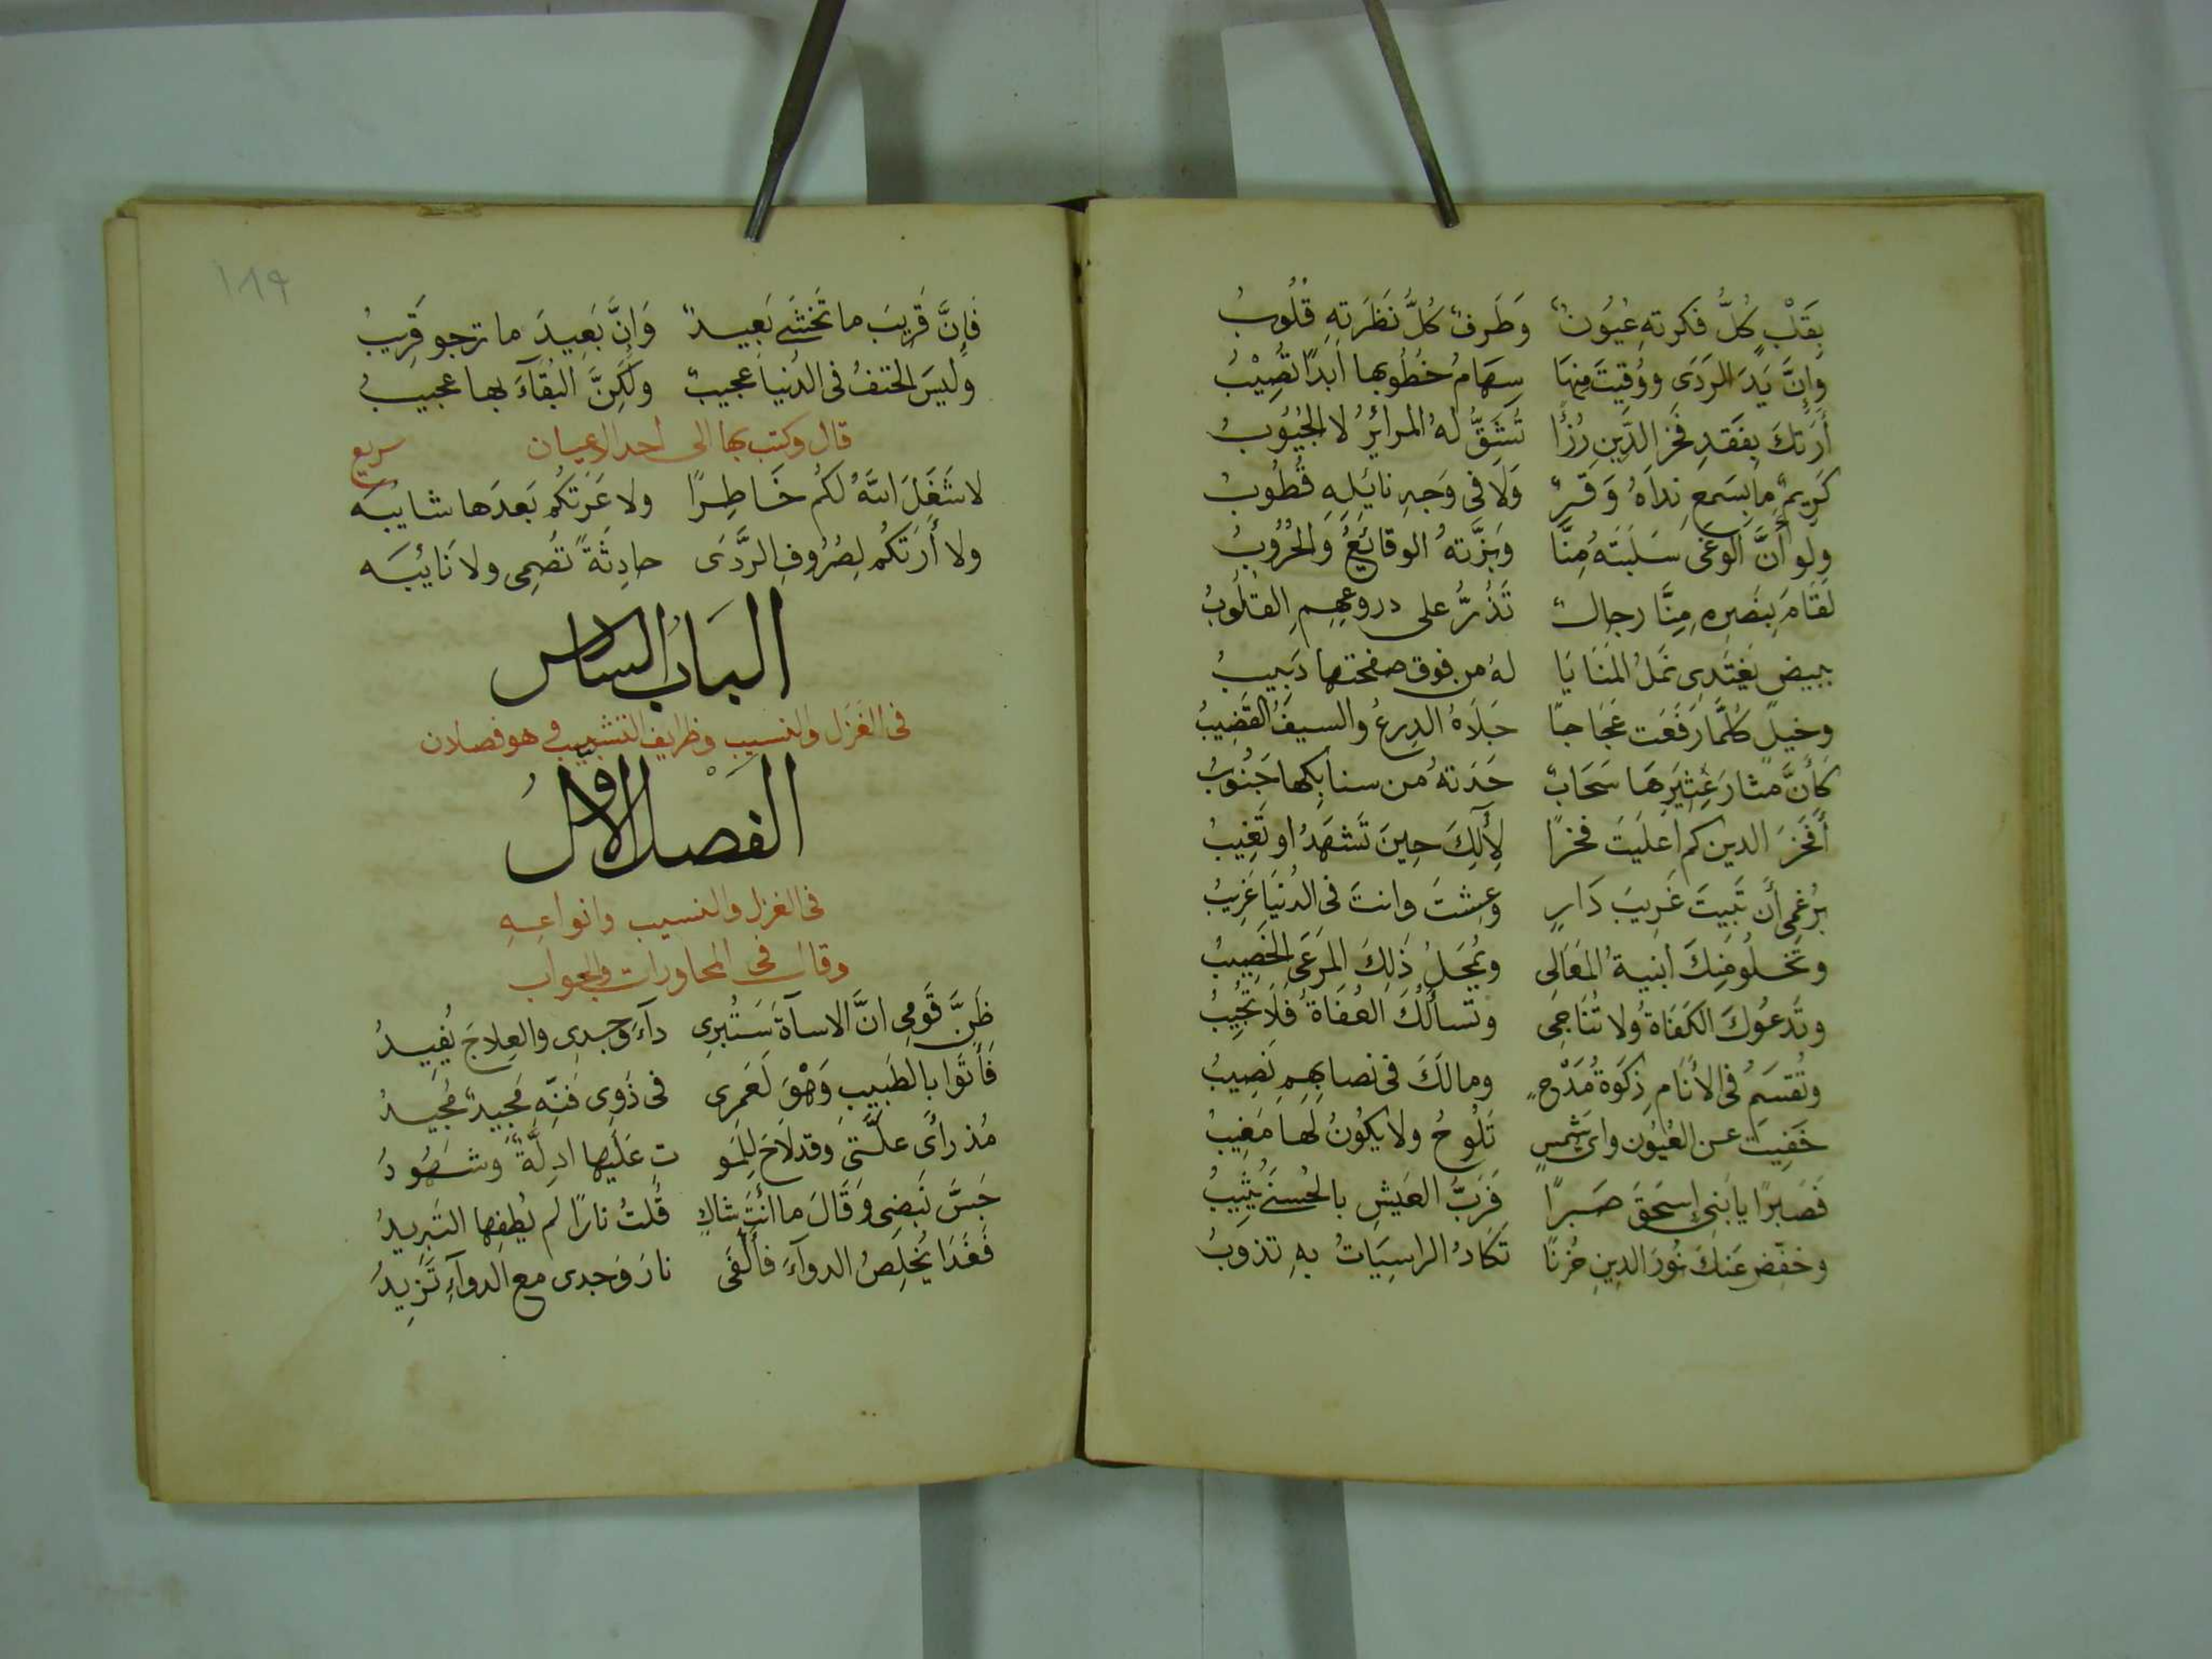 بِقَلْبٍ كُلُّ فكرتهِ عُيُونٌ وَطَرفٌ كُلُّ نَظَرَتِهِ قُلُوبُ
وَإِنَّ يَدَ الردَى وَوُقيتَ مِنهَا سِهَامُ خُطُوبها أبدًا تُصِيْبُ
أَرَتكَ بِفَقدِ فَخرِ الدِّينِ رُزْأً تُشَقُّ لهُ المرائرُ لا الجُيُوبُ
كَرِيمٌ ما بسَمعِ نِداهُ وَقرٌ وَلَا في وَجهِ نايَلِهِ قُطُوبُ
ولو أنَّ الوَغَى سَلَبَتهُ مِنَّا وَبزَّتهُ الوقائِعُ وَالحُرُوبُ
لَقَامَ بِنَصرِهِ مِنَّا رجالٌ تُذَرُّ على دروعهِمِ القُلُوبُ
ببيضٍ يَغتَدِى نَملُ المَنَايَا لهُ من فوق صفحتها دَبِيبُ
وخيلٍ كُلَّمَا رَفَعَت عَجَاجًا جَلَاهُ الدِرعُ والسيفُ القَضِيبُ
كَأَنَّ مثارَ عِثيَرِهَا سَحَابٌ حَدَتهُ من سنابِكها جَنُوبُ
أَفَخرَ الدين كم اعلَيتَ فخرًا لِآلِكَ حِينَ تَشهَدُ او تَغِيبُ
برُغمِى أَن تَبِيتَ غَرِيبَ دَارٍ وعِشتَ وانتَ في الدُنيَا غَرِيبُ
وتَخلُو مِنكَ ابنيةُ المَعَالى ويُمحِلُ ذلِكَ المَرعَى الخَصِيبُ
وتَدعُوكَ الكفَاةُ ولا تُنَاجِى وتسأَلُكَ العُفَاةُ فَلَا تُجِيبُ
وتُقسَمُ في الأنَامِ زكوةُ مَدْحٍ ومالَكَ في نصابِهِمِ نَصِيبُ
خَفِيتَ عن العُيُونِ واىُ شَمسٍ تَلُوحُ ولا يكُونُ لَها مَغِيبُ
فَصَبرًا يا بَنِى إسحَقَ صَبرًا فَرَبُّ العَيشِ بالحُسنَى يُثِيبُ
وخفِّض عَنكَ نُورَ الدِينِ حُزنًا تَكَادُ الراسِيَاتُ بهِ تذوبُ
١٨٩
فَإِنَّ قَرِيبَ ما تَخشَى بَعِيدٌ وَإِنَّ بَعِيدَ ما ترجو قَرِيبُ
وليسَ الحتفُ في الدُنيا عجيبٌ ولكِنَّ البُقآءَ بها عجيبُ
قال وكتب بها الى احد الاعيان سريع
لا شَغَلَ اللهُ لكُم خَاطِرًا ولا عَرَتكُم بَعدَها شايبَه
ولا أَرَتكُم لِصُرُوفِ الرَّدَى حادِثَةً تُصمِى ولا نَائبَه
البَابُ السادس
في الغَزَل والنسيب وظرايف التشبيب وهو فصلان
الفَصْل الاولُ
في الغزل والنسيب وانواعِهِ
وقال في المحاورات والجواب
ظَنَّ قَومِى انَّ الاسآةَ سَتُبرِى دآءَ وَجدِى والعِلاجَ يُفِيدُ
فَأَتَوا بالطَبيبِ وَهْوَ لَعَمرِى في ذَوِى فَنِّهِ مَجِيدٌ مُجِيدُ
مُذ رأَى عِلَّتى وقد لَاحَ لِلمَو تِ عَلَيها ادِلَّةٌ وَشُهُودُ
جَسَّ نَبضِى وَقَالَ ما أَنتَ شاكٍ قُلتُ نارًا لم يُطفِها التَبرِيدُ
فَغَدَا يُخلِصُ الدوآءَ فأَلفَى نارَ وَجدى مع الدوآءِ تَزِيدُ